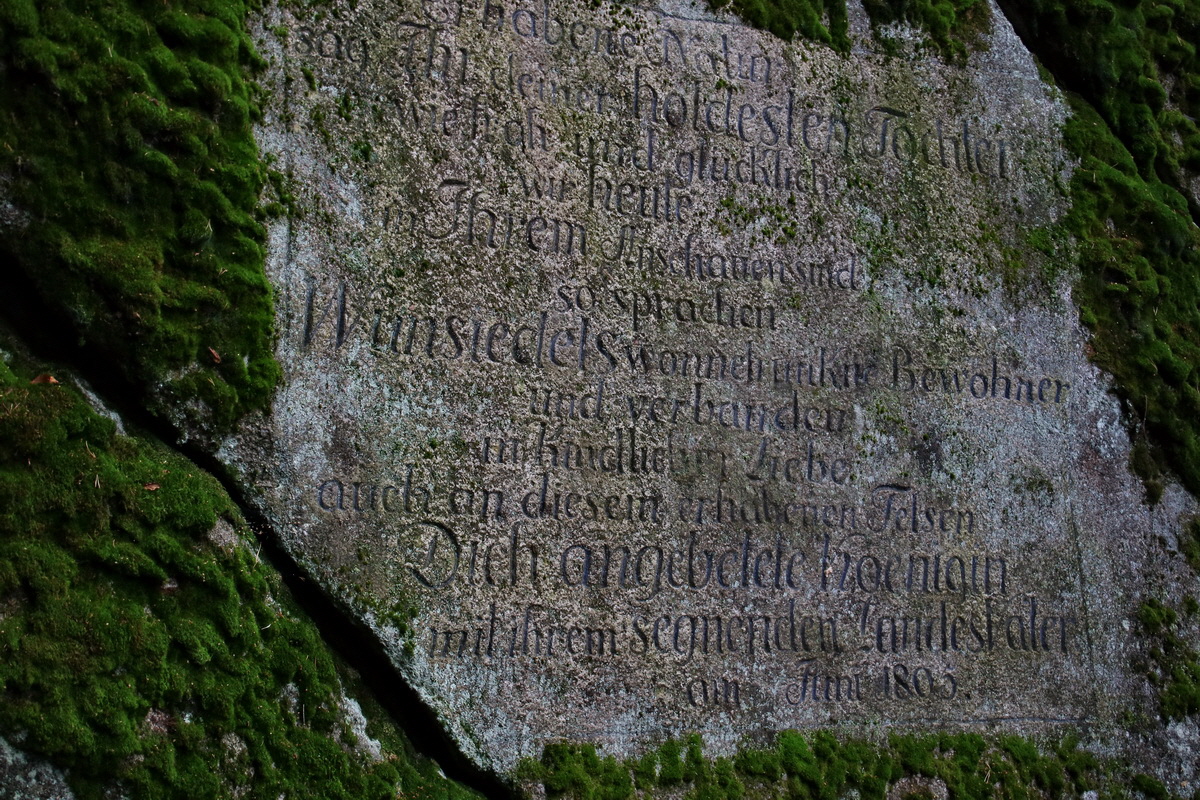 Erhabene Natur
sag Ihr deiner holdesten Tochter
wie froh und glücklich
wir heute
in Ihrem Anschauen sind
so sprachen
Wunsiedels wonnetrunkne Bewohner
und verbanden
in kindlicher Liebe
auch an diesem erhabenen Felsen
Dich angebetete Koenigin
mit ihrem segnenden Landesvater
am Juni 1805.